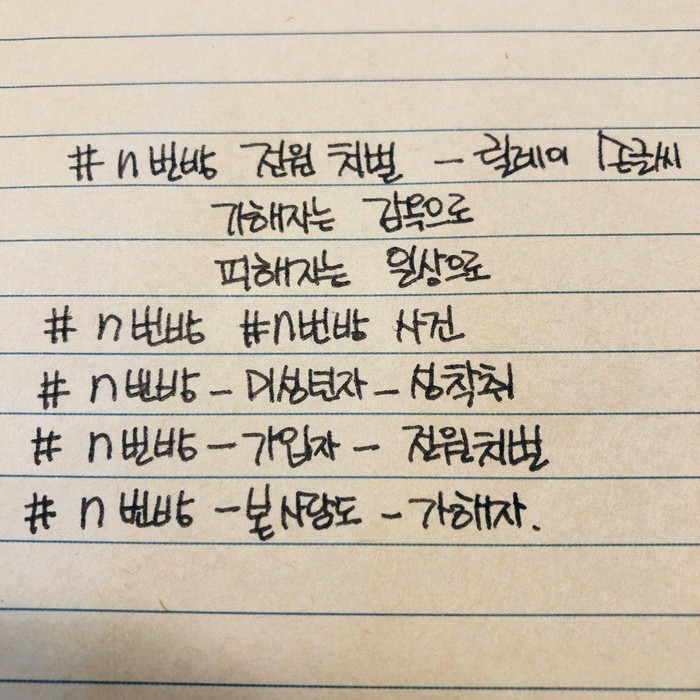 # n번방 전원 처벌 - 릴레이 손글씨
가해자는 감옥으로
피해자는 일상으로
# n번방 #n번방 사건
# n번방 - 미성년자 - 성착취
# n번방 - 가입자 - 전원처벌
# n번방 - 본사람도 - 가해자.